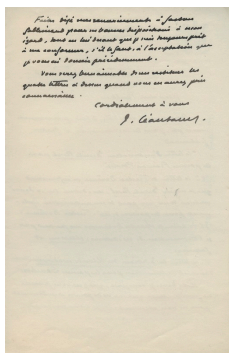 Faites déjà mes remerciements à Gaston
pour ses bonnes dispositions à mon
égard, tout en lui disant que je suis toujours prêt
à me conformer, s'il le faut, à l'acceptation que
je vous ai donnée précédemment.
Vous serez bien aimable de me restituer les
quatre lettres ci-dessus quand vous en aurez pris
connaissance.
Cordialement à vous